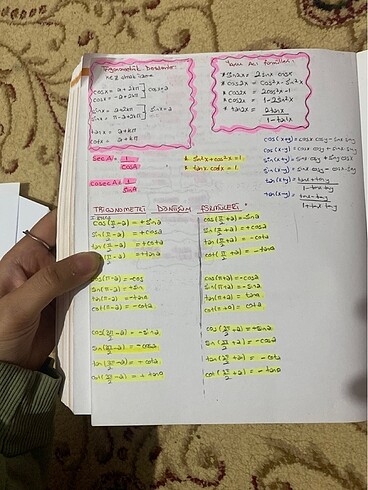 Trigonometrik Denklemler
k∈Z olmak üzere
cosx = a+2kπ
cosx = -a+2kπ
cosx=a
sinx = a+2kπ
sinx = π-a+2kπ
sinx=a
tanx = a+kπ
cotx = a+kπ
Yarım Açı Formülleri
* sin2x = 2sinx·cosx
* cos2x = cos²x-sin²x
* cos2x = 2cos²x-1
* cos2x = 1-2sin²x
* tan2x = 2tanx / 1-tan²x
sec A = 1 / cosA
cosec A = 1 / sinA
* sin²x+cos²x=1
* tanx·cotx=1
cos(x+y) = cosx·cosy-sinx·siny
cos(x-y) = cosx·cosy+sinx·siny
sin(x+y) = sinx·cosy+siny·cosx
sin(x-y) = sinx·cosy-siny·cosx
tan(x+y) = tanx+tany / 1-tanx·tany
tan(x-y) = tanx-tany / 1+tanx·tany
TRİGONOMETRİ DÖNÜŞÜM FORMÜLLERİ
cos(π/2-a) = +sina
sin(π/2-a) = +cosa
tan(π/2-a) = +cota
(π/2-a) = +tana
cos(π-a) = -cosa
sin(π-a) = +sin
tan(π-a) = -tana
cot(π-a) = -cota
cos(3π/2-a) = -sina
sin(3π/2-a) = -cosa
tan(3π/2-a) = -cota
cot(3π/2-a) = + tana
cos(π/2+a) = -sina
sin(π/2+a) = +cosa
tan(π/2+a) = -cota
cot(π/2+a) = -tana
cos(π+a) = -cosa
sin(π+a) = -sina
tan(π+a) = tana
cot(π+a) = cota
cos(3π/2+a) = +sina
sin(3π/2+a) = -cosa
tan(3π/2+a) = -cota
cot(3π/2+a) = -tana